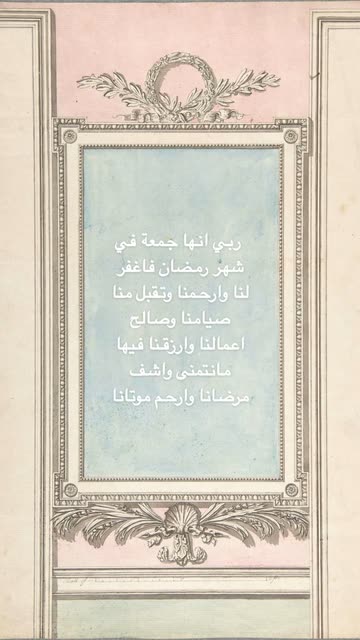 ربي انها جمعة في
شهر رمضان فاغفر
لنا وارحمنا وتقبل منا
صيامنا وصالح
اعمالنا وارزقنا فيها
مانتمنى واشف
مرضانا وارحم موتانا